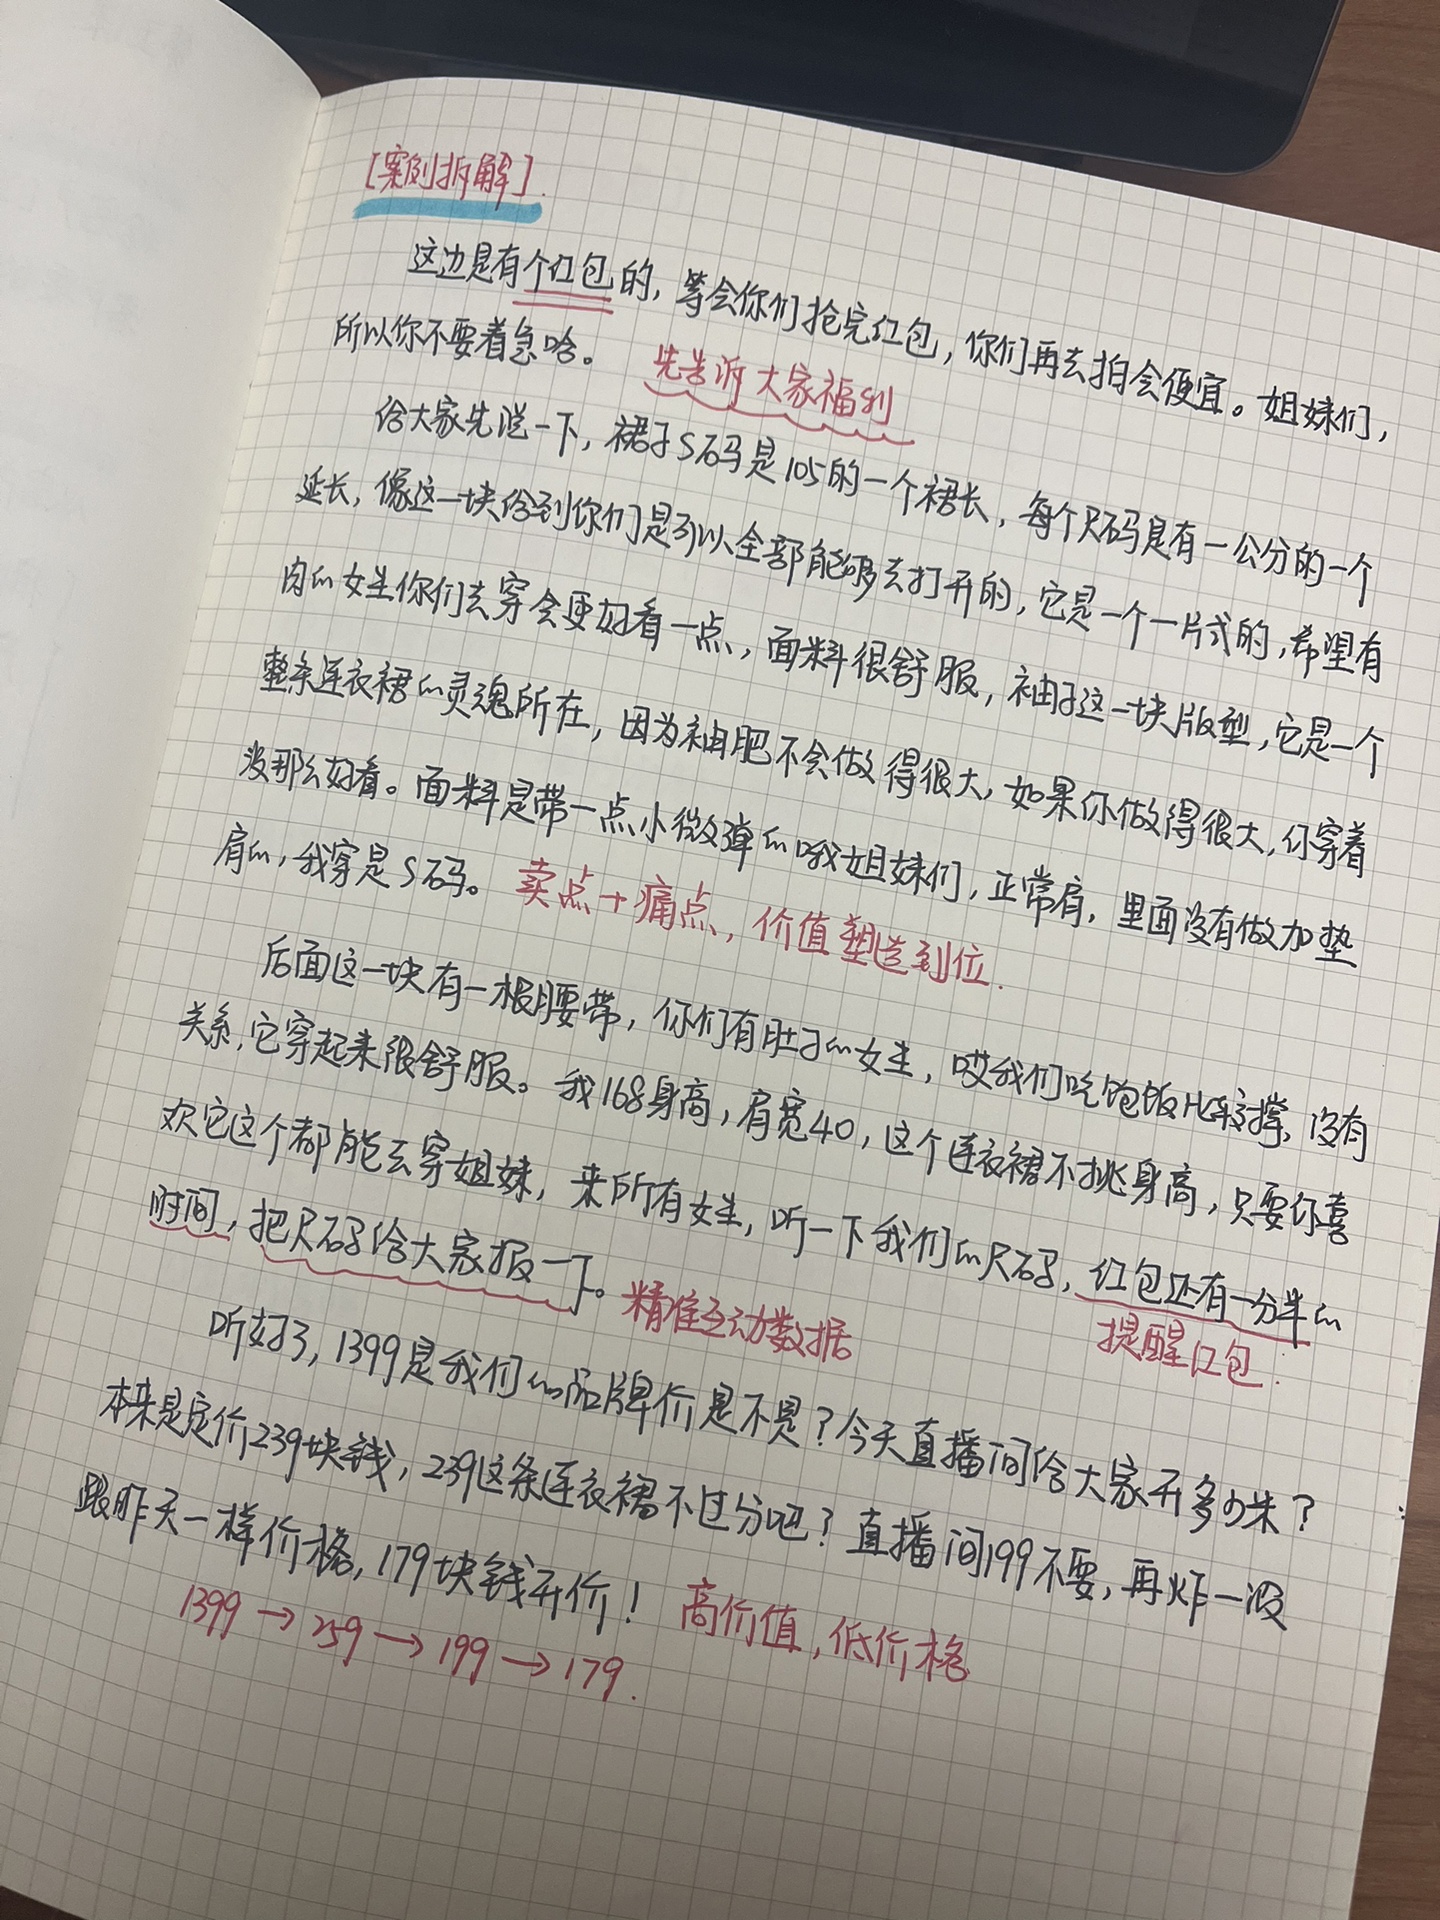 [案例拆解].
这边是有个红包的，等会你们抢完红包，你们再去拍会便宜。姐妹们，
所以你不要着急哈。 先告诉大家福利
给大家先说一下，裙子S码是105的一个裙长，每个尺码是有一公分的一个
延长，像这一块给到你们是可以全部能够去打开的，它是一个一片式的，希望有
肉的女生你们去穿会更好看一点，面料很舒服，袖子这一块版型，它是一个
整条连衣裙的灵魂所在，因为袖肥不会做得很大，如果你做得很大，你穿着
没那么好看。面料是带一点小微弹的哦姐妹们，正常肩，里面没有做加垫
肩的，我穿是S码。 卖点+痛点，价值塑造到位.
后面这一块有一根腰带，你们有肚子的女生，哎我们吃饱饭比较撑，没有
关系，它穿起来很舒服。我168身高，肩宽40，这个连衣裙不挑身高，只要你喜
欢它这个都能去穿姐妹，来所有女生，听一下我们的尺码，红包还有一分半的
时间，把尺码给大家报一下。 精准互动数据 提醒红包.
听好了，1399是我们的品牌价是不是？今天直播间给大家开多少米？
本来是定价239块钱，239这条连衣裙不过分吧？直播间199不要，再炸一波
跟昨天一样价格，179块钱开价！ 高价值，低价格
1399→259→199→179.